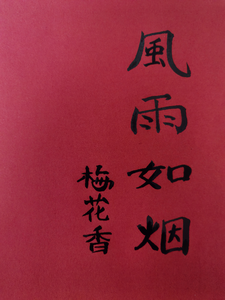 風雨如烟
梅花香